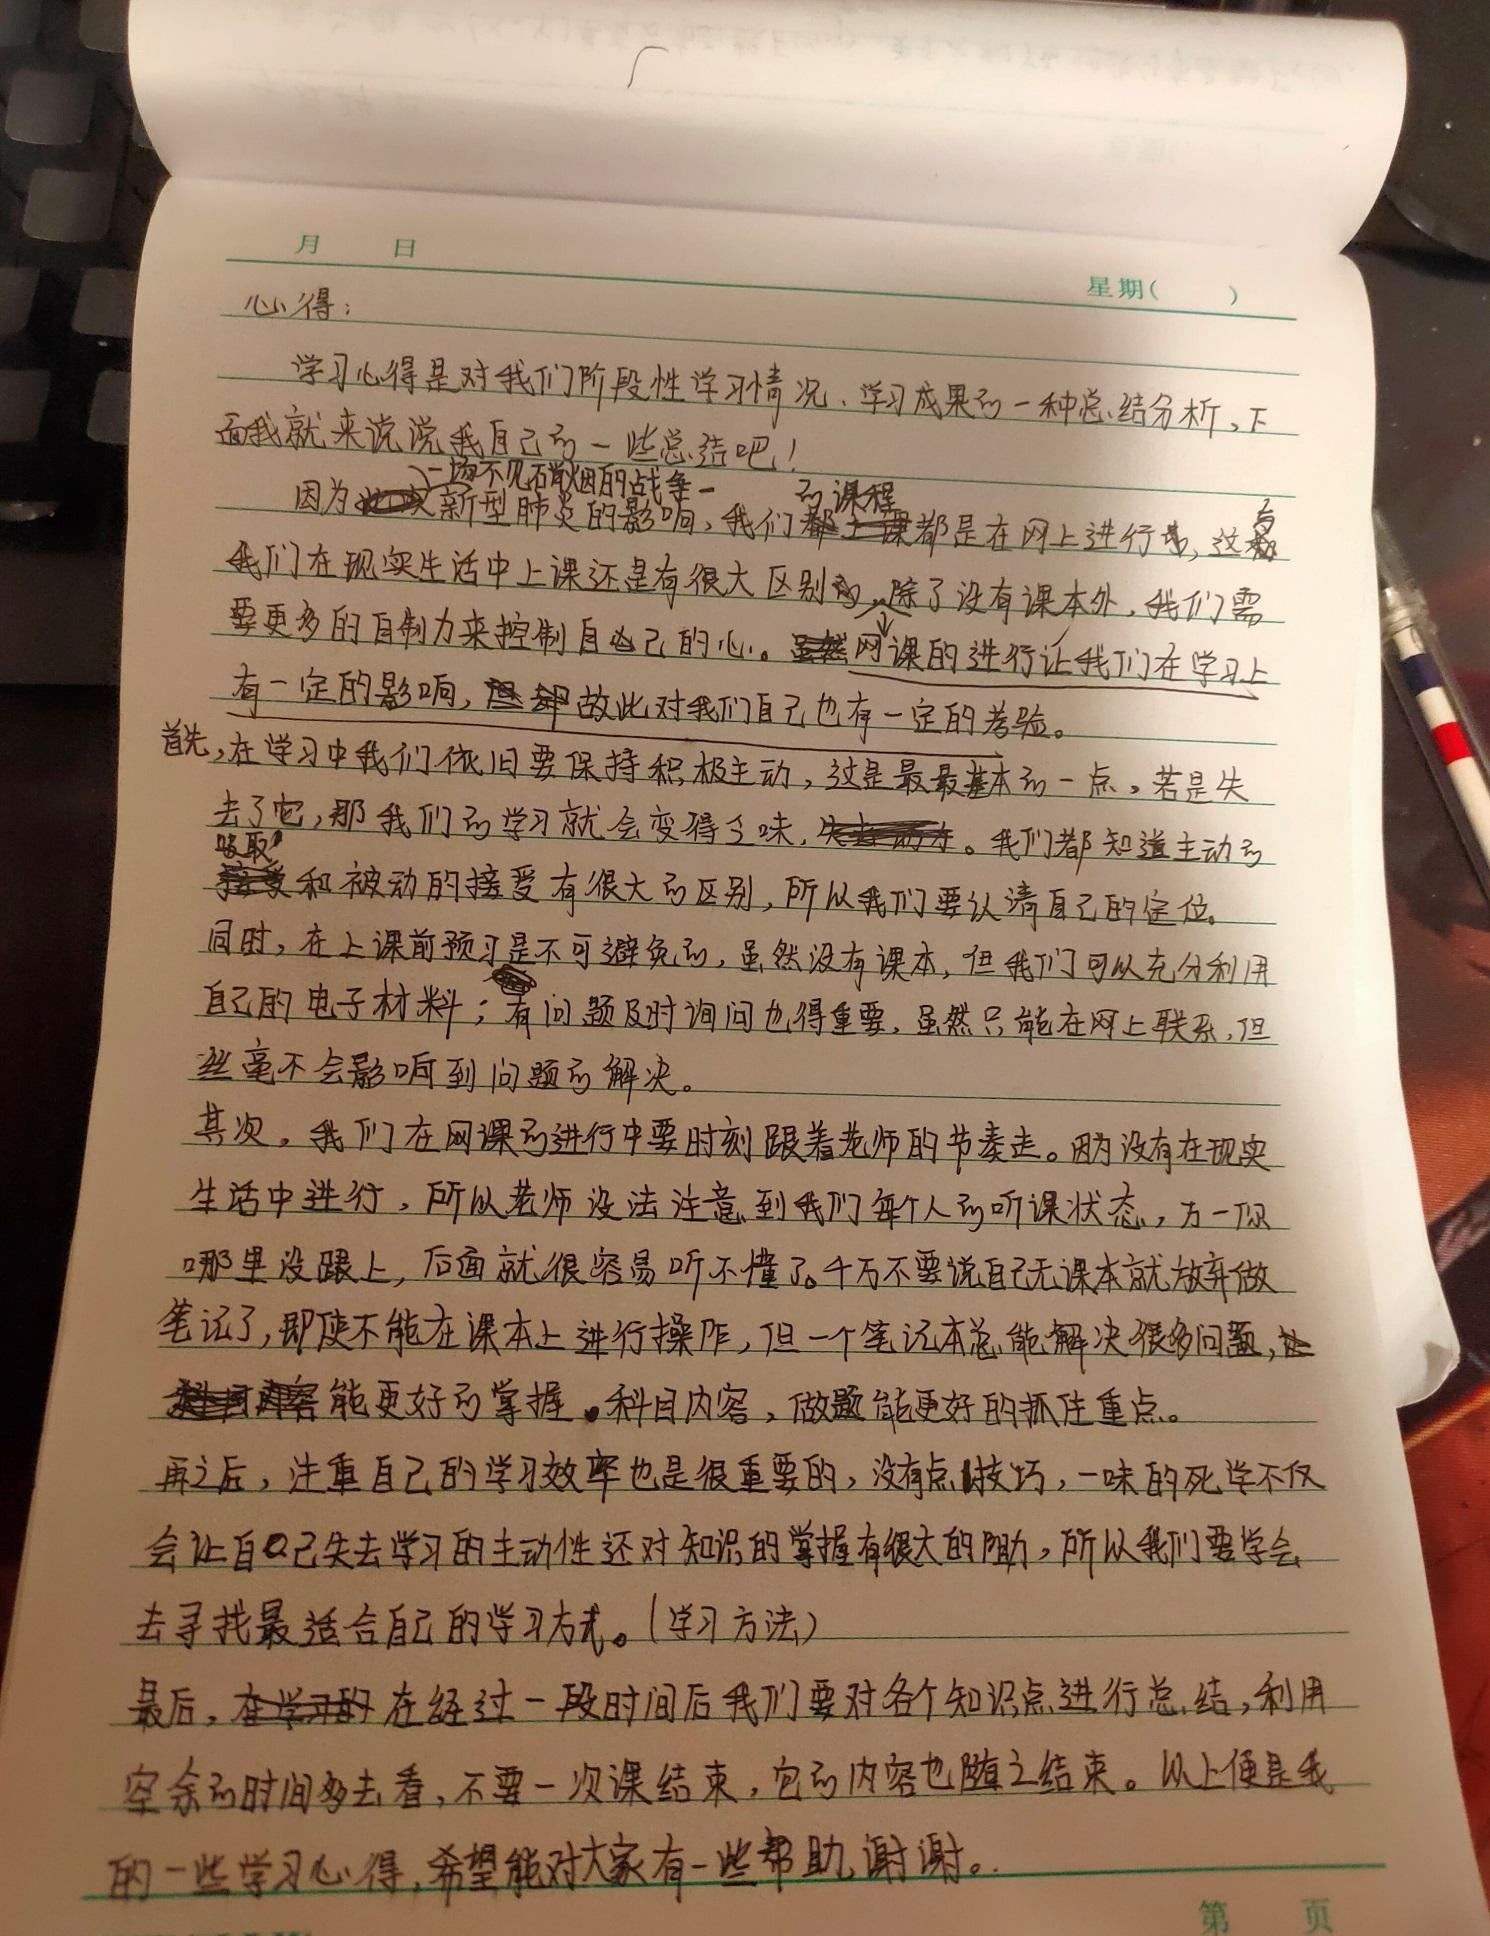 月 日
星期( )
心得：
学习心得是对我们阶段性学习情况、学习成果的一种总结分析，下
面我就来说说我自己的一些总结吧！
一场不见硝烟的战争— 的课程
因为新型肺炎的影响，我们都是在网上进行，这与
我们在现实生活中上课还是有很大区别，除了没有课本外，我们需
要更多的自制力来控制自己的心。网课的进行让我们在学习上
有一定的影响，故此对我们自己也有一定的考验。
首先，在学习中我们依旧要保持积极主动，这是最最基本的一点。若是失
去了它，那我们的学习就会变得乏味，。我们都知道主动的
吸取
和被动的接受有很大的区别，所以我们要认清自己的定位。
同时，在上课前预习是不可避免的，虽然没有课本，但我们可以充分利用
自己的电子材料；有问题及时询问也得重要，虽然只能在网上联系，但
丝毫不会影响到问题的解决。
其次，我们在网课的进行中要时刻跟着老师的节奏走。因为没有在现实
生活中进行，所以老师没法注意到我们每个人的听课状态，万一你
哪里没跟上，后面就很容易听不懂了。千万不要说自己无课本就放弃做
笔记了，即使不能在课本上进行操作，但一个笔记本总能解决很多问题，
能更好的掌握。科目内容，做题能更好的抓住重点。
再之后，注重自己的学习效率也是很重要的，没有点技巧，一味的死学不仅
会让自己失去学习的主动性还对知识的掌握有很大的阻力，所以我们要学会
去寻找最适合自己的学习方式。（学习方法）
最后，在经过一段时间后我们要对各个知识点进行总结，利用
空余的时间多去看，不要一次课结束，它的内容也随之结束。以上便是我
的一些学习心得，希望能对大家有一些帮助，谢谢。
第 页